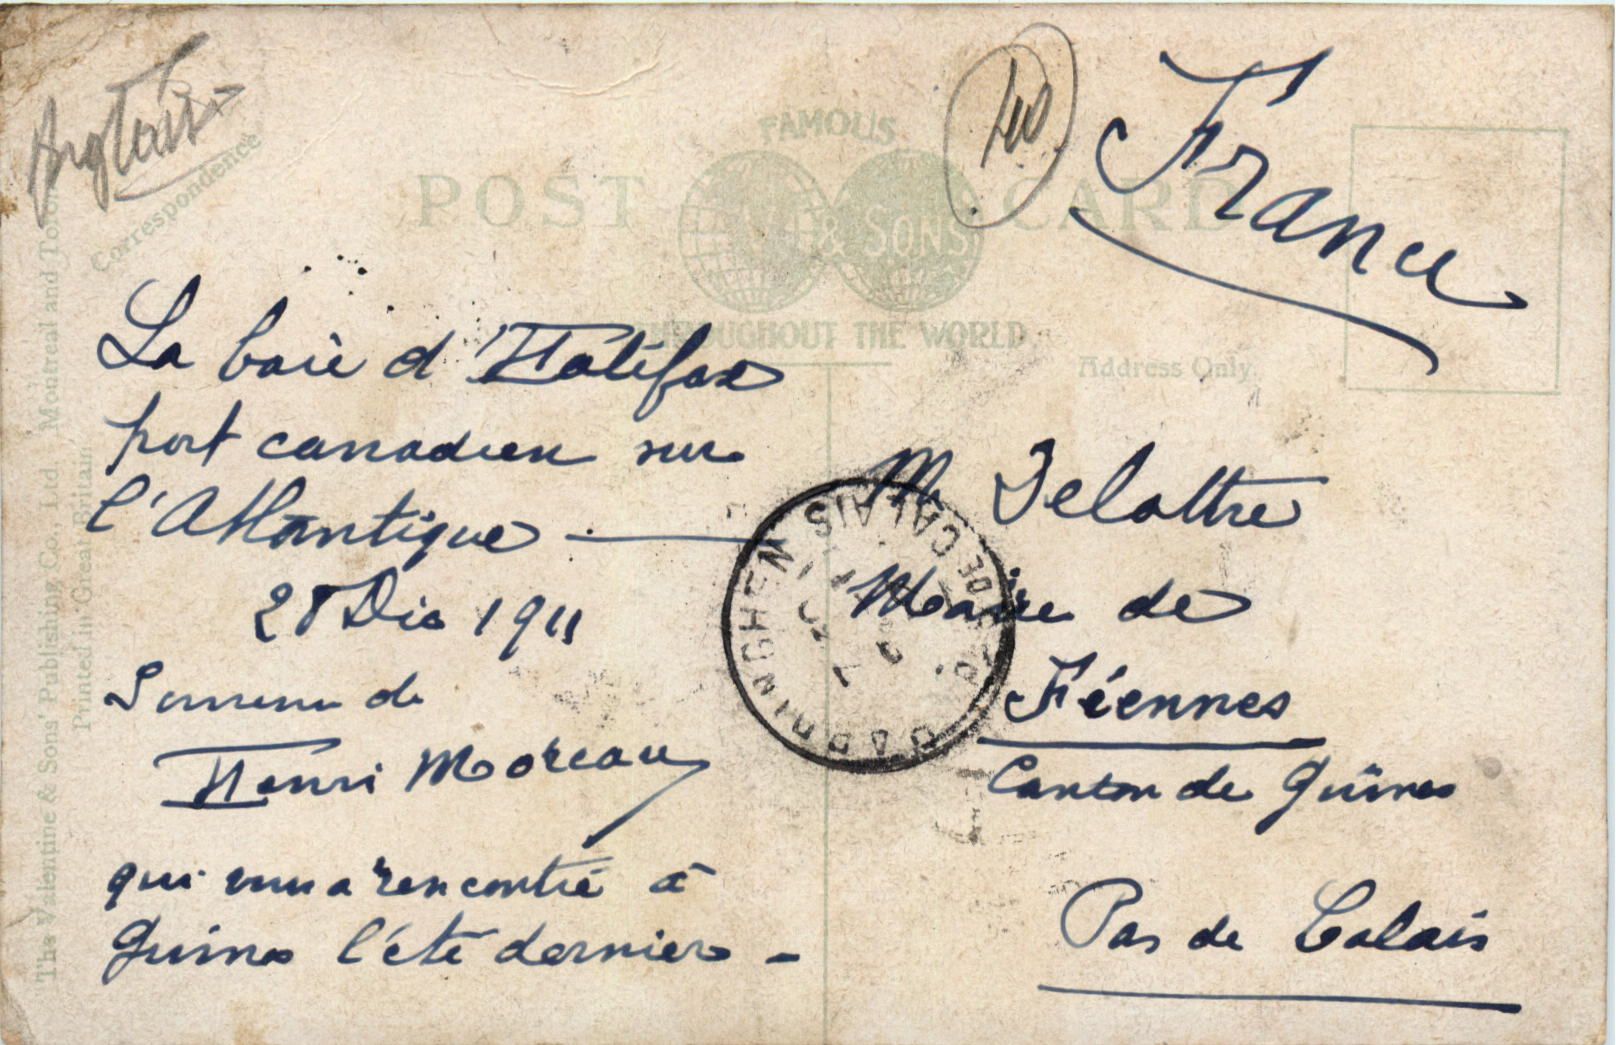 Correspondence
FAMOUS
POST CARD
& SONS
THROUGHOUT THE WORLD
Address Only.
France
La baie d'Halifax
port canadien sur
l'Atlantique
28 Dec 1911
Souvenir de
Henri Moreau
qui vous a rencontré à
Guines l'été dernier -
M. Delattre
Maire de
Fiennes
Canton de Guînes
Pas de Calais
HARDINGHEN
PAS DE CALAIS
The Valentine & Sons' Publishing Co., Ltd., Montreal and Toronto
Printed in Great Britain